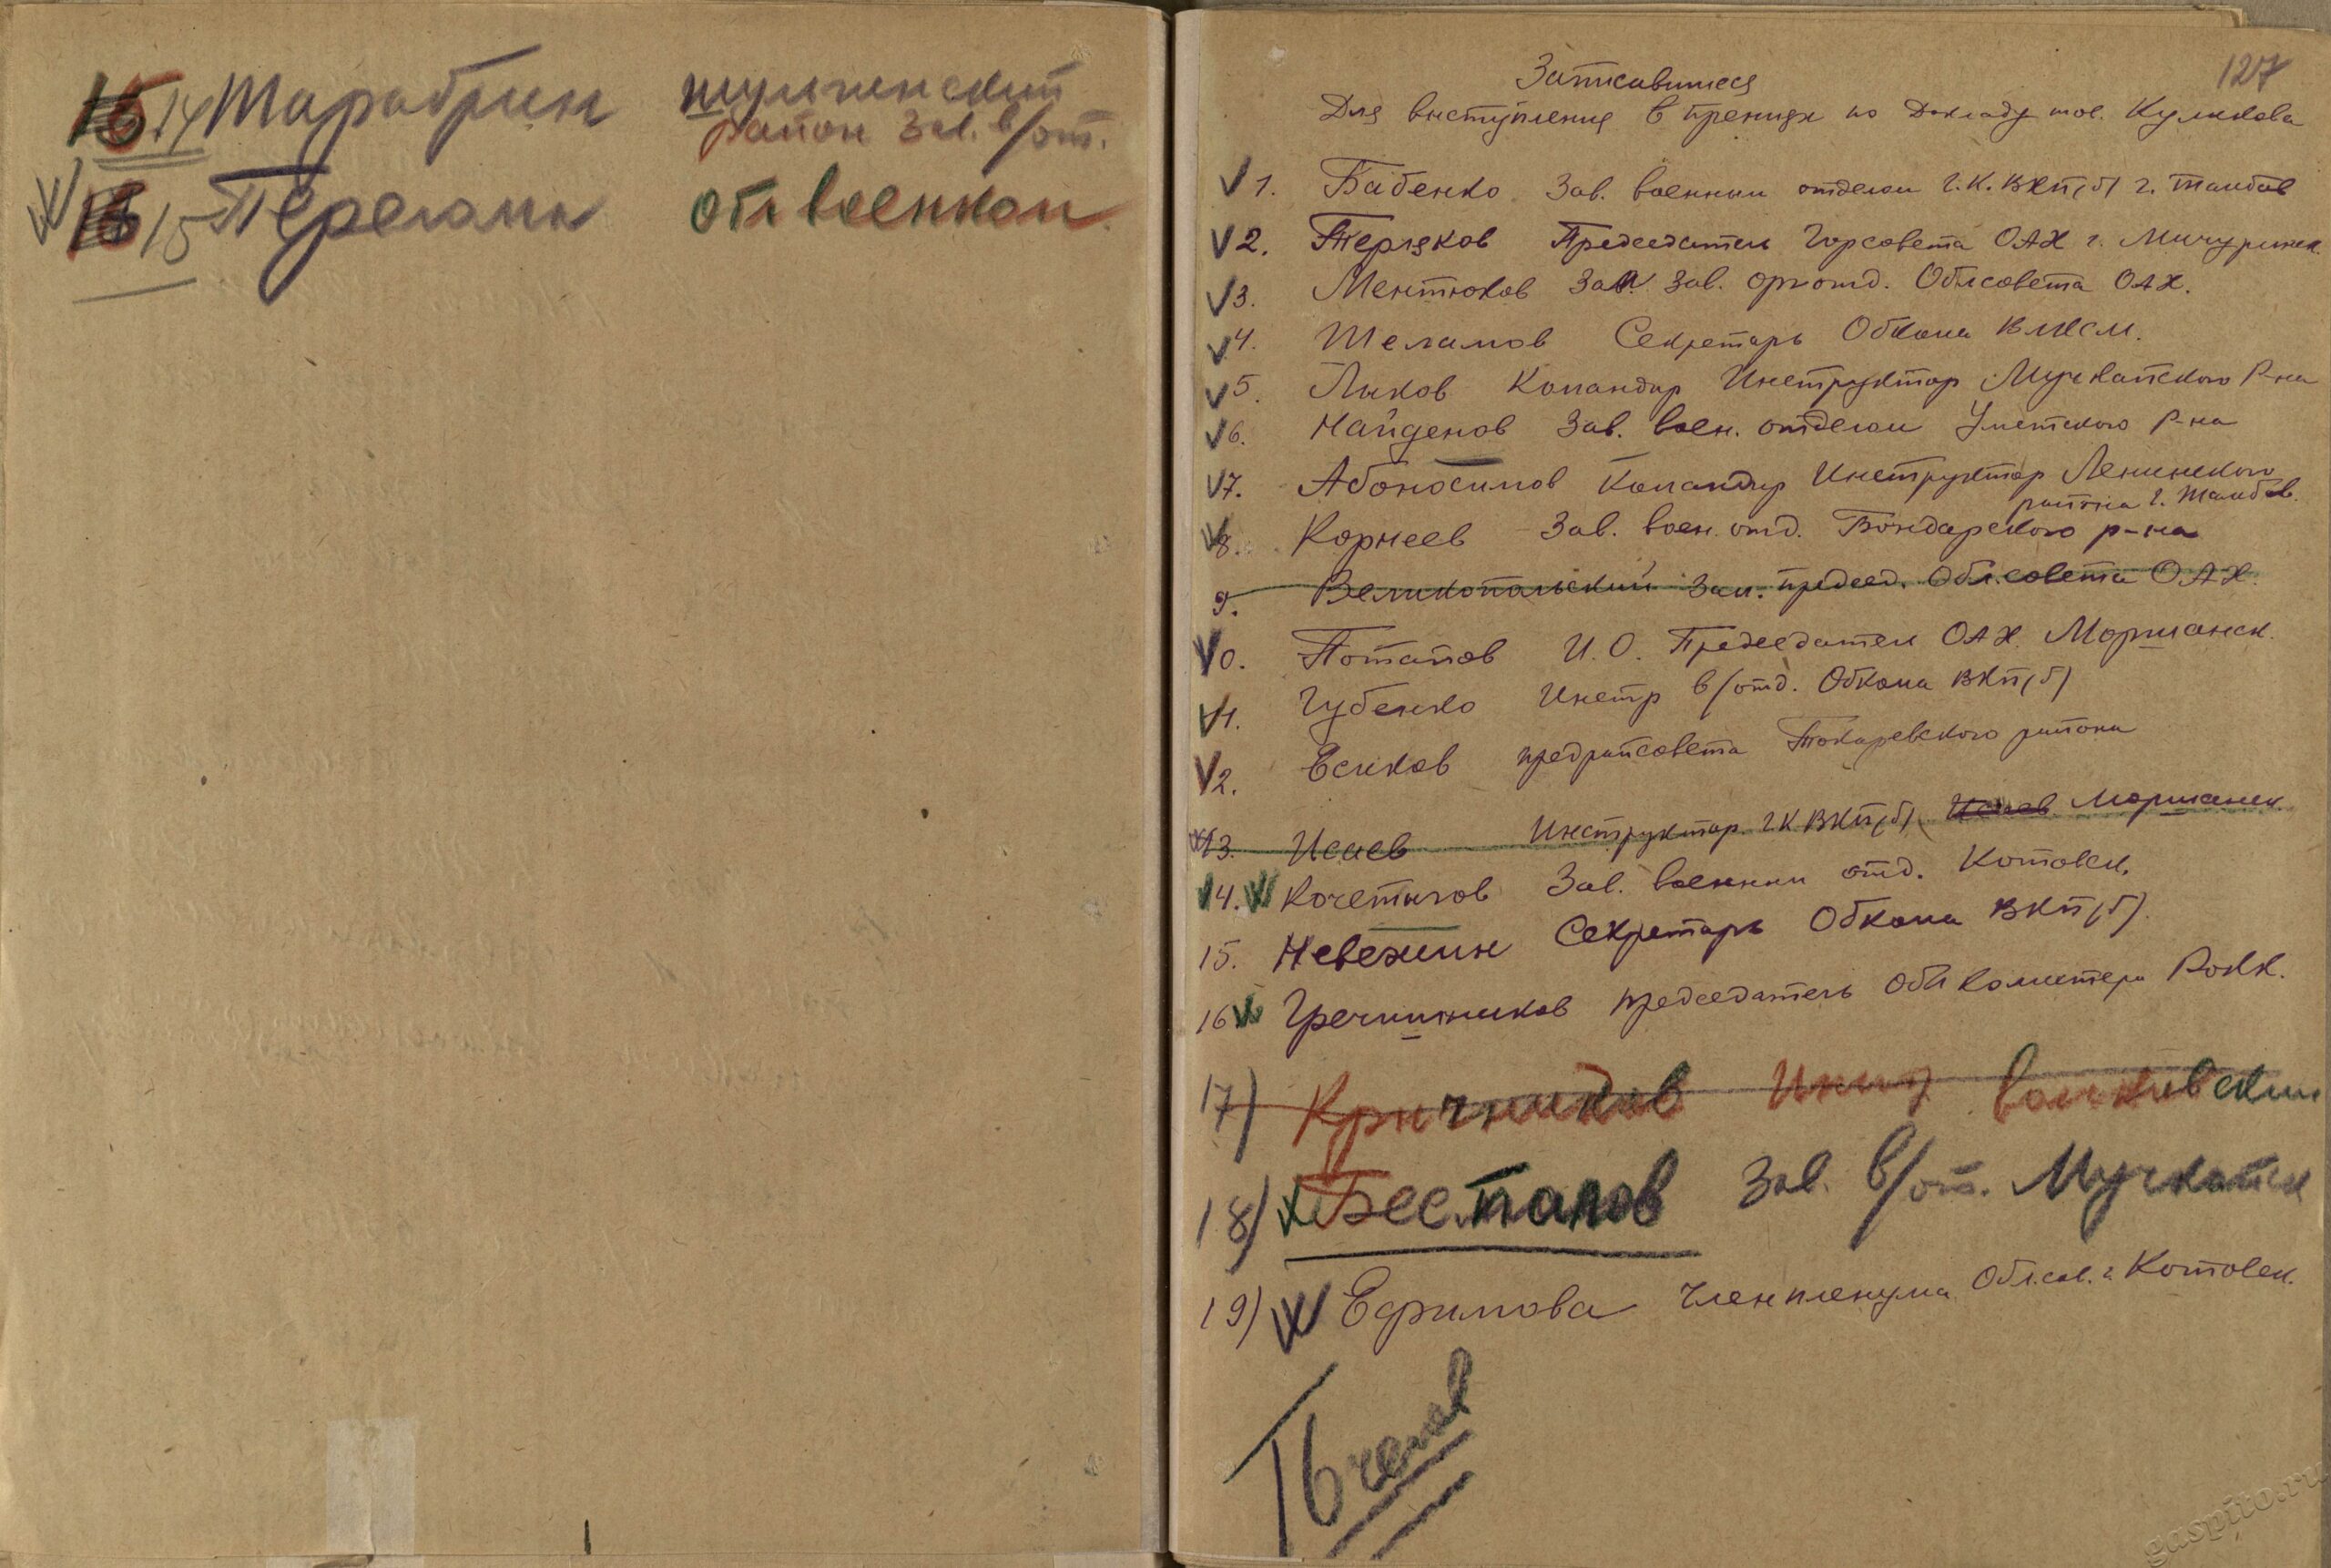 14 Тарабрин шульгинский
район Зав. в/от.
15 Перелома Облвоенком
127
Записавшиеся
Для выступления в прениях по Докладу тов. Куликова
1. Бабенко Зав. военным отделом Г.К. ВКП(б) г. Тамбов
2. Терляков Председатель Горсовета ОАХ г. Мичуринск
3. Ментюков Зам. Зав. орготд. Облсовета ОАХ.
4. Шеламов Секретарь Обкома ВЛКСМ.
5. Лыков Командир Инструктор Мучкапского Р-на
6. Найденов Зав. воен. отделом Уметского р-на
7. Абоносимов Командир Инструктор Ленинского
района г. Тамбов.
8. Корнеев Зав. воен. отд. Бондарского р-на
9. Великопольский Зам. председ. Обл.совета ОАХ.
10. Потапов И.О. Председателя ОАХ. Моршанск.
11. Губенко Инстр в/отд. Обкома ВКП(б)
12. Есиков предрайсовета Токаревского района
13. Исаев Инструктор. ГК ВКП(б) Исаев Моршанск.
14. Кочетыгов Зав. военным отд. Котовск.
15. Невежин Секретарь Обкома ВКП(б).
16 Гречишников председатель Облкомитета РОКК.
17)
18) Беспалов Зав. в/от. Мучкапск
19) Ефимова Член пленума Обл.сов. г. Котовск.
16 челов
gaspito.ru